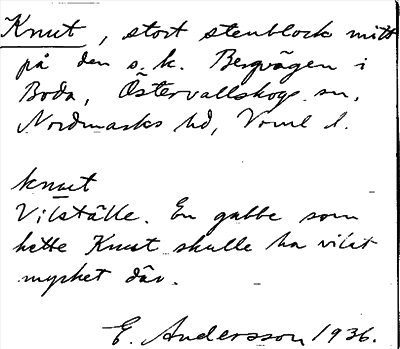 Knut, stort stenblock mitt
på den s.k. Bergvägen i
Boda, Östervallskogs sn,
Nordmarks hd, Vrml l.
knut
Vilställe. En gubbe som
hette Knut skulle ha vilat
mycket där.
E. Andersson 1936.